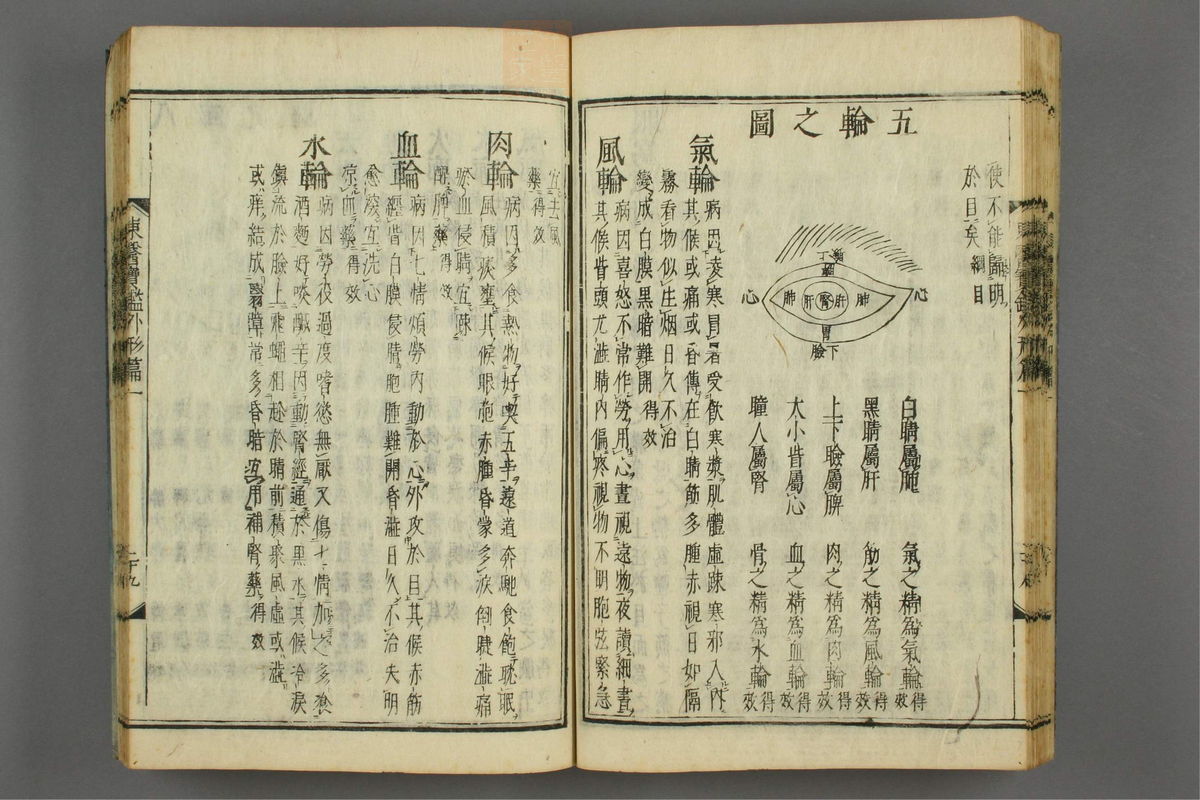 使不能歸明
於目矣綱目
五輪之圖
上瞼
胃
心
肺
肝
腎
肝
肺
心
胃
下瞼
白睛屬肺 氣之精爲氣輪得效
黑睛屬肝 筋之精爲風輪得效
上下瞼屬脾 肉之精爲肉輪得效
大小眥屬心 血之精爲血輪得效
瞳人屬腎 骨之精爲水輪得效
氣輪 病因凌寒冒暑受飮寒漿肌體虛踈寒邪入內
其候或痛或昏傳在白睛筋多腫赤視日如隔
霧看物似生烟日久不治
變成白膜黑暗難開得效
風輪 病因喜怒不常作勞用心晝視遠物夜讀細書
其候眥頭尤澁睛內偏疼視物不明胞弦緊急
宜去風
藥得效
肉輪 病因多食熱物好喫五辛遠道奔馳食飽耽眠
風積痰壅其候眼胞赤腫昏蒙多淚倒睫澁痛
瘀血侵睛宜踈
醒脾藥得效
血輪 病因七情煩勞內動於心外攻於目其候赤筋
經眥白膜侵睛胞腫難開昏澁日久不治失明
愈深宜洗心
凉血藥得效
水輪 病因勞役過度嗜慾無厭又傷七情加之多飡
酒麪好啖醎辛因動腎經通於黑水其候冷淚
鎭流於臉上飛蠅相趂於睛前積聚風虛或澁
或痒結成翳障常多昏暗宜用補腎藥得效
東醫寶鑑外形篇一
二十九